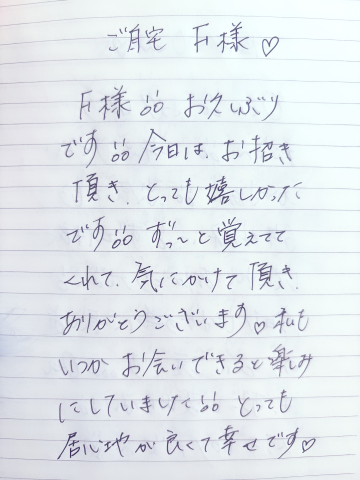 ご自宅 F様♡
F様!! お久しぶり
です!! 今日は、お招き
頂き、とっても嬉しかった
です!! ずっ〜と覚えてて
くれて、気にかけて頂き、
ありがとうございます♡ 私も
いつか お会いできると楽しみ
にしていました!! とっても
居心地が良くて幸せです♡